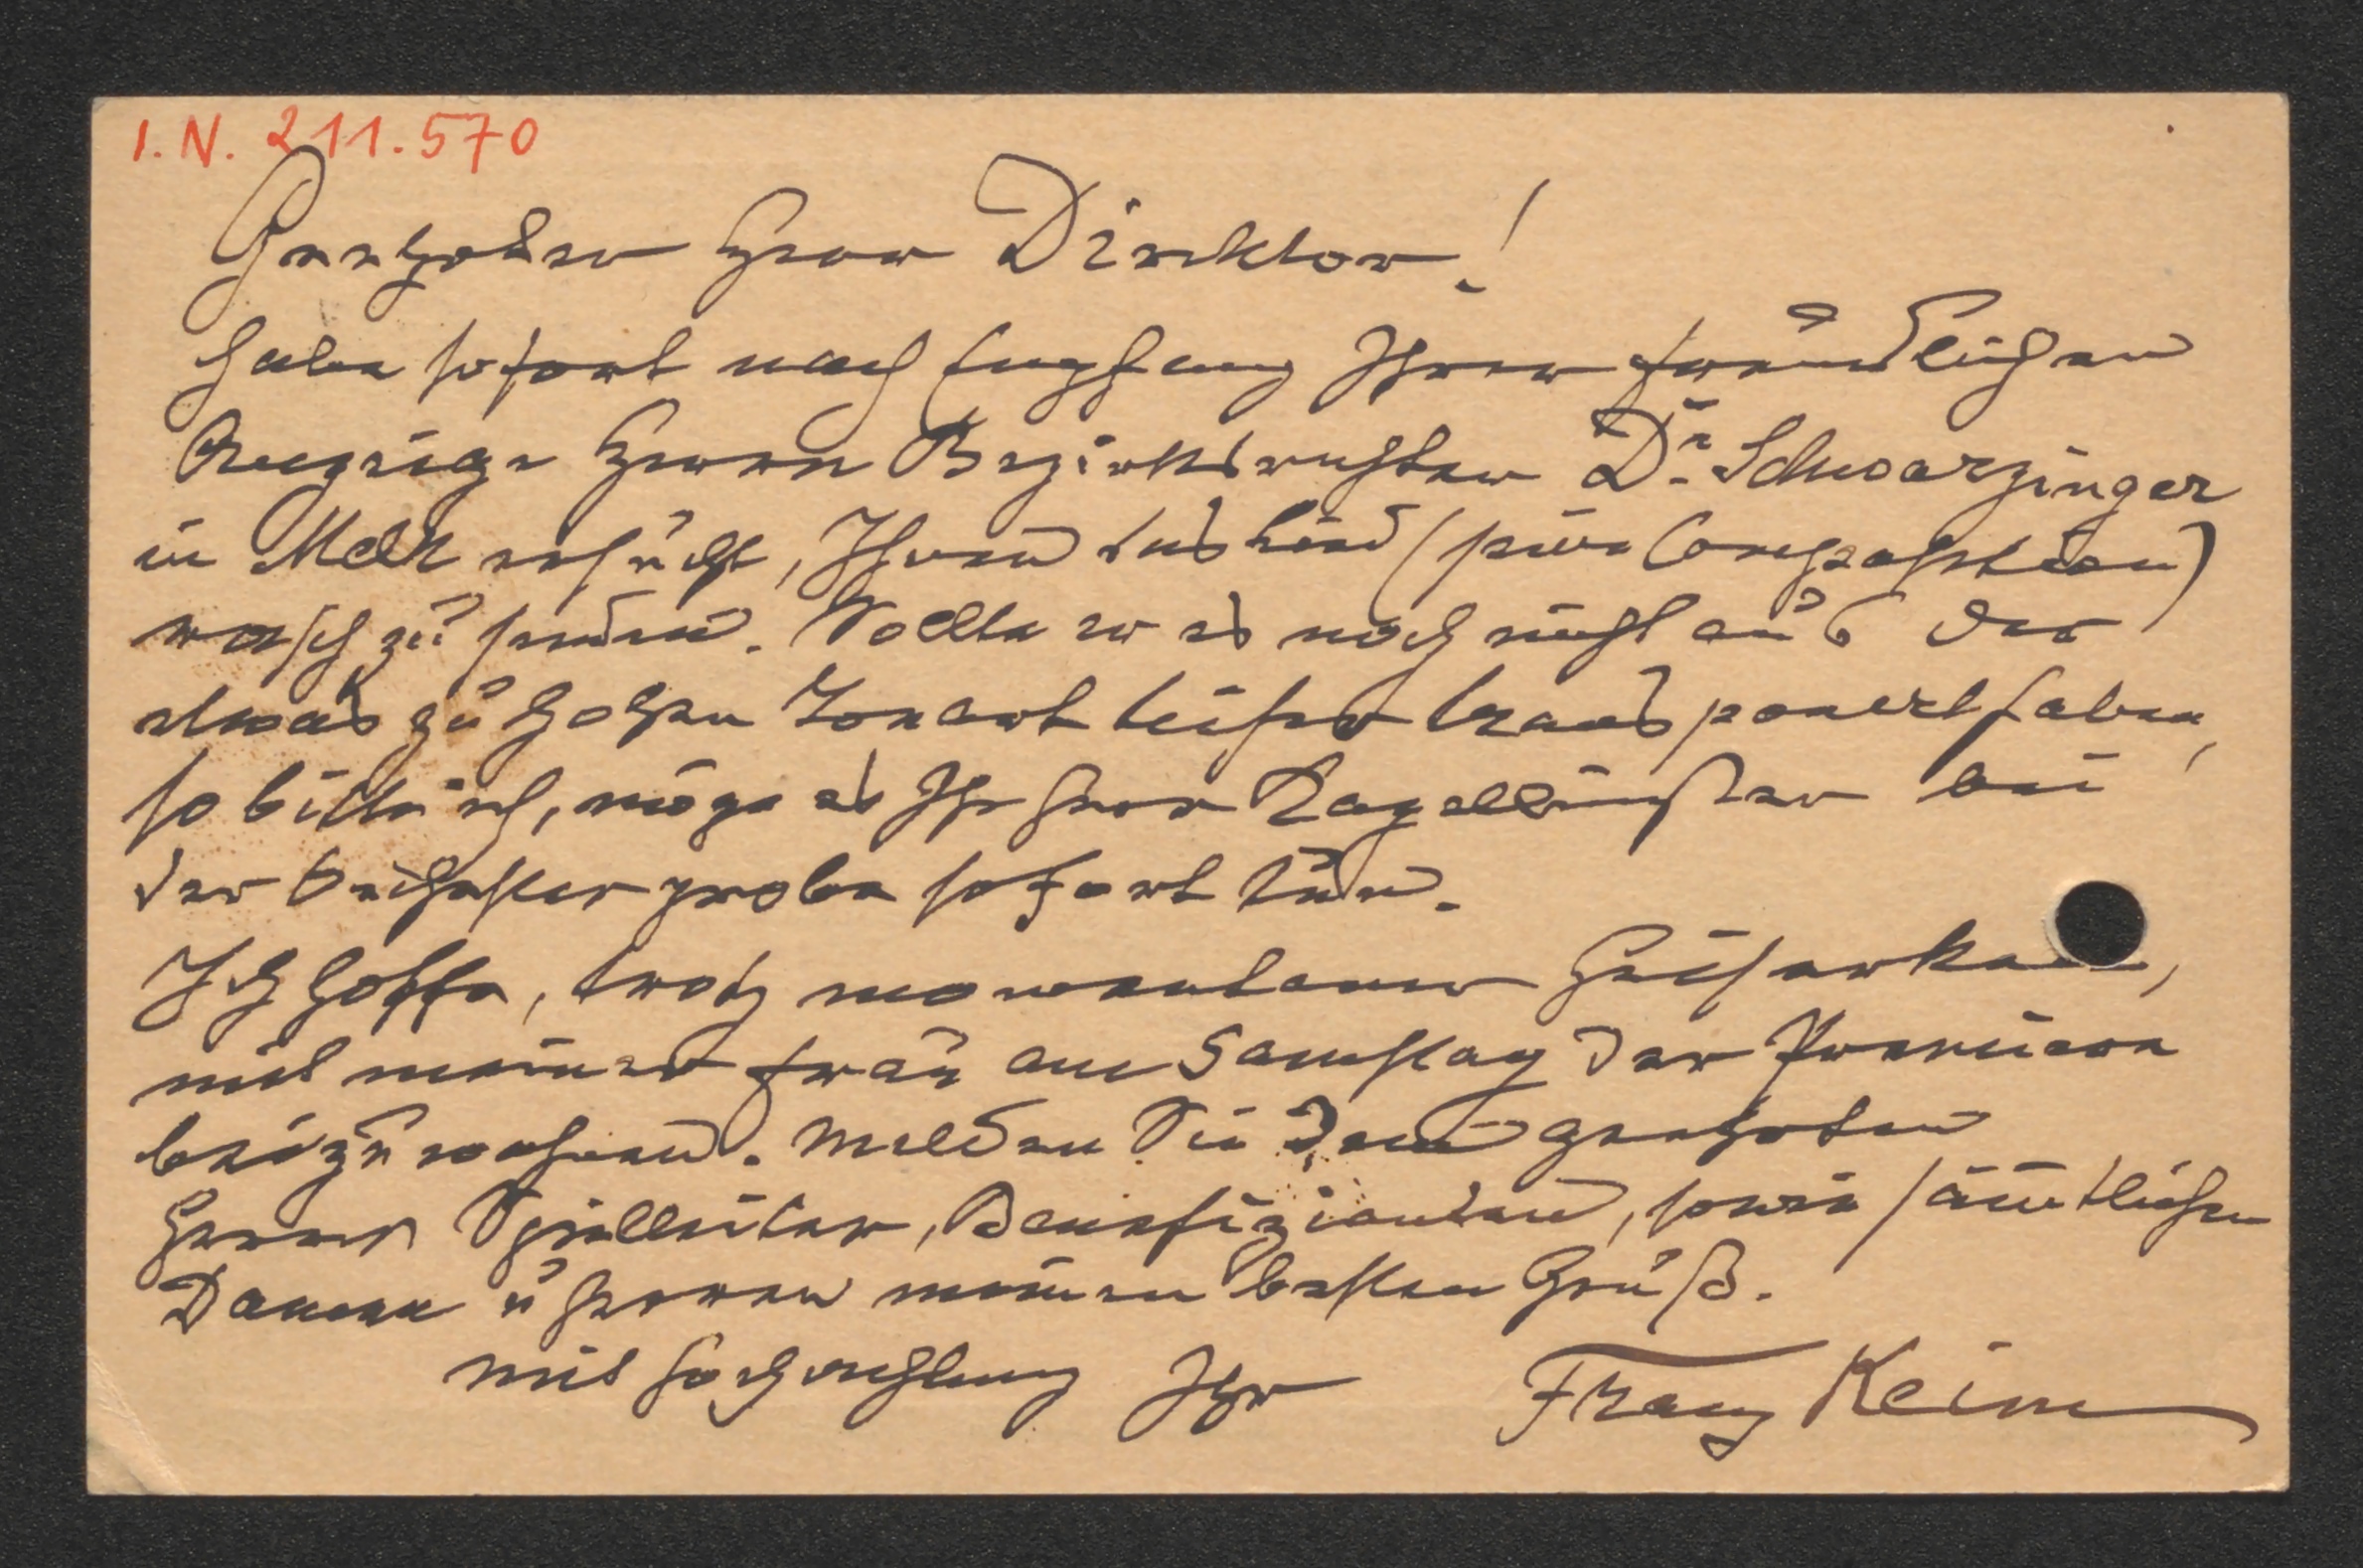 I.N. 211.570
Geehrter Herr Direktor!
Habe sofort nach Empfang Ihrer freundlichen
Anzeige Herrn Bezirksrichter Dr. Schwarzinger
in Melk ersucht, Ihnen das Lied (seine Composition)
rasch zu senden. Sollte er es noch nicht aus der
etwas zu hohen Tonart tiefer transponiert haben,
so bitte ich, möge es Ihr Herr Kapellmeister bei
der Orchesterprobe sofort tun.
Ich hoffe, trotz momentaner Heiserkeit,
mit meiner Frau am Samstag der Premiere
beizuwohnen. Melden Sie dem geehrten
Herrn Spielleiter, Benefizianten, sowie sämtlichen
Damen u Herren meinen besten Gruß.
Mit Hochachtung Ihr Franz Keim